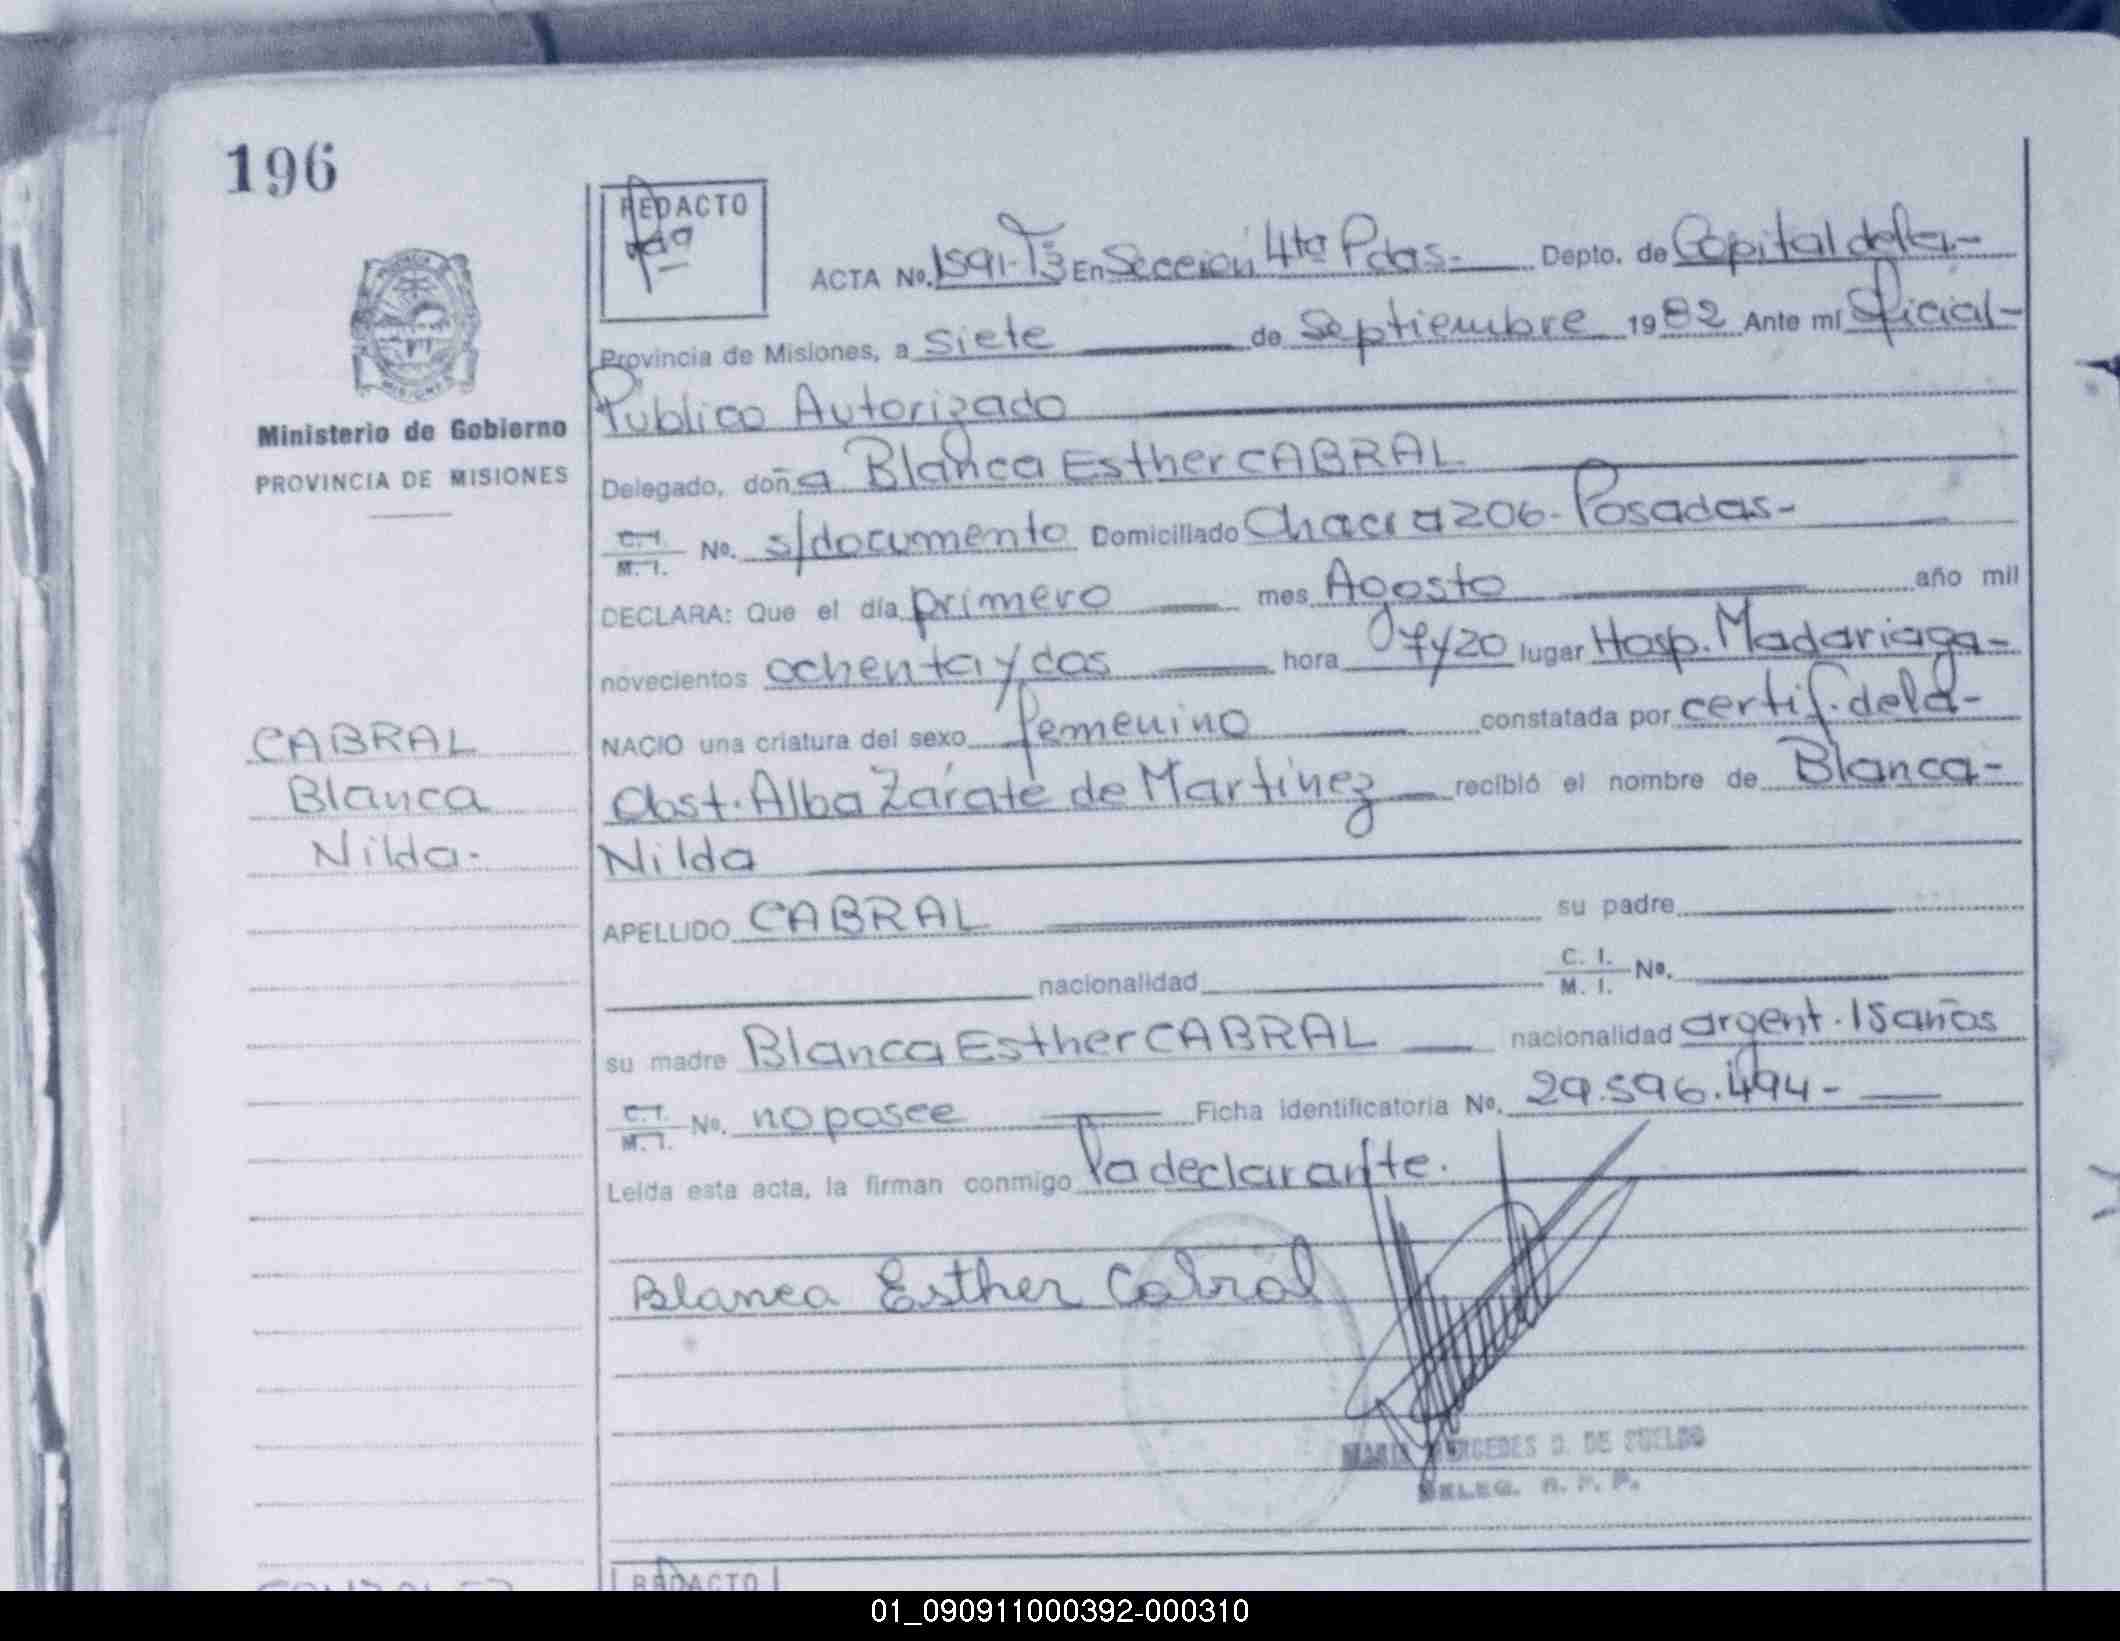 196
REDACTO
ACTA No. 1591-T3 En Sección 4ta Pdas.- Depto. de Capital de la-
Provincia de Misiones, a siete de Septiembre 1982 Ante mí Oficial-
Público Autorizado
Ministerio de Gobierno
PROVINCIA DE MISIONES
Delegado, doña Blanca Esther CABRAL
C. I. M. I. No. s/documento Domiciliado Chacra 206- Posadas-
DECLARA: Que el día primero mes Agosto año mil
novecientos ochenta y dos hora 07y20 lugar Hosp. Madariaga-
CABRAL
Blanca
Nilda-
NACIO una criatura del sexo femenino constatada por certif. de la-
Obst. Alba Zárate de Martínez recibió el nombre de Blanca-
Nilda
APELLIDO CABRAL su padre
nacionalidad C. I. M. I. No.
su madre Blanca Esther CABRAL nacionalidad argent. 15 años
C. I. M. I. No. no posee Ficha identificatoria No. 29.596.494-
Leída esta acta, la firman conmigo la declarante.
Blanca Esther Cabral
MARIA MERCEDES D. DE SUELDO
DELEG. R. P. P.
REDACTO
01_090911000392-000310